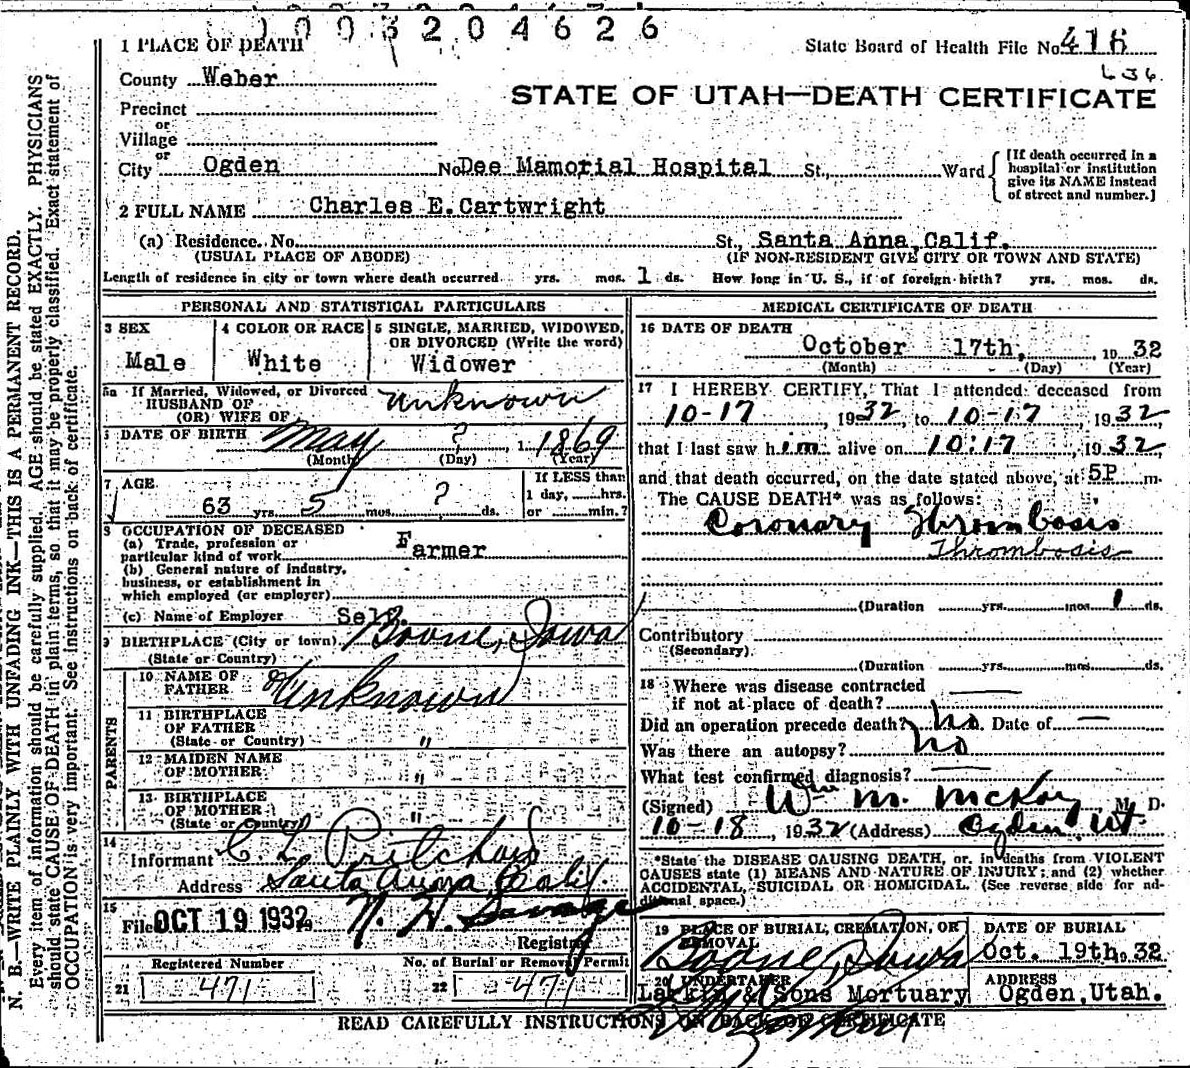 1003204626
1 PLACE OF DEATH
State Board of Health File No. 418
636
County Weber
STATE OF UTAH—DEATH CERTIFICATE
Precinct
or
Village
or
City Ogden No. Dee Mamorial Hospital St., Ward
[If death occurred in a
hospital or institution
give its NAME instead
of street and number.]
2 FULL NAME Charles E. Cartwright
(a) Residence. No. St., Santa Anna, Calif.
(USUAL PLACE OF ABODE) (IF NON-RESIDENT GIVE CITY OR TOWN AND STATE)
Length of residence in city or town where death occurred yrs. mos. 1 ds. How long in U. S., if of foreign birth? yrs. mos. ds.
PERSONAL AND STATISTICAL PARTICULARS
3 SEX
Male
4 COLOR OR RACE
White
5 SINGLE, MARRIED, WIDOWED,
OR DIVORCED (Write the word)
Widower
5a If Married, Widowed, or Divorced
HUSBAND OF
(OR) WIFE OF
Unknown
6 DATE OF BIRTH May ? 1 1869
(Month) (Day) (Year)
7 AGE
63 yrs. 5 mos. ? ds.
If LESS than
1 day, hrs.
or min.?
8 OCCUPATION OF DECEASED
(a) Trade, profession or
particular kind of work Farmer
(b) General nature of industry,
business, or establishment in
which employed (or employer)
(c) Name of Employer Self.
9 BIRTHPLACE (City or town) Boone, Iowa
(State or Country)
PARENTS
10 NAME OF
FATHER Unknown
11 BIRTHPLACE
OF FATHER
(State or Country) "
12 MAIDEN NAME
OF MOTHER "
13 BIRTHPLACE
OF MOTHER
(State or Country) "
14
Informant C L Pritchard
Address Santa Anna Calif.
15
Filed OCT 19 1932 N. H. Savage
Registrar
Registered Number No. of Burial or Removal Permit
21 471 22 471
MEDICAL CERTIFICATE OF DEATH
16 DATE OF DEATH
October 17th, 19 32
(Month) (Day) (Year)
17 I HEREBY CERTIFY, That I attended deceased from
10-17, 1932 to 10-17, 1932
that I last saw him alive on 10:17, 1932
and that death occurred, on the date stated above, at 5P m.
The CAUSE DEATH* was as follows:
Coronary Thrombosis
Thrombosis
(Duration yrs. mos. 1 ds.
Contributory
(Secondary)
(Duration yrs. mos. ds.
18 Where was disease contracted
if not at place of death?
Did an operation precede death? No. Date of —
Was there an autopsy? No
What test confirmed diagnosis?
(Signed) Wm M. McKay M. D.
10-18, 1932 (Address) Ogden, Ut.
*State the DISEASE CAUSING DEATH, or, in deaths from VIOLENT
CAUSES state (1) MEANS AND NATURE OF INJURY; and (2) whether
ACCIDENTAL, SUICIDAL OR HOMICIDAL. (See reverse side for ad-
ditional space.)
19 PLACE OF BURIAL, CREMATION, OR
REMOVAL
Boone, Iowa
DATE OF BURIAL
Oct. 19th, 32
20 UNDERTAKER
Larkin & Sons Mortuary
ADDRESS
Ogden, Utah.
READ CAREFULLY INSTRUCTIONS ON BACK OF CERTIFICATE
N. B.—WRITE PLAINLY WITH UNFADING INK—THIS IS A PERMANENT RECORD.
Every item of information should be carefully supplied. AGE should be stated EXACTLY. PHYSICIANS
should state CAUSE OF DEATH in plain terms, so that it may be properly classified. Exact statement of
OCCUPATION is very important. See instructions on back of certificate.